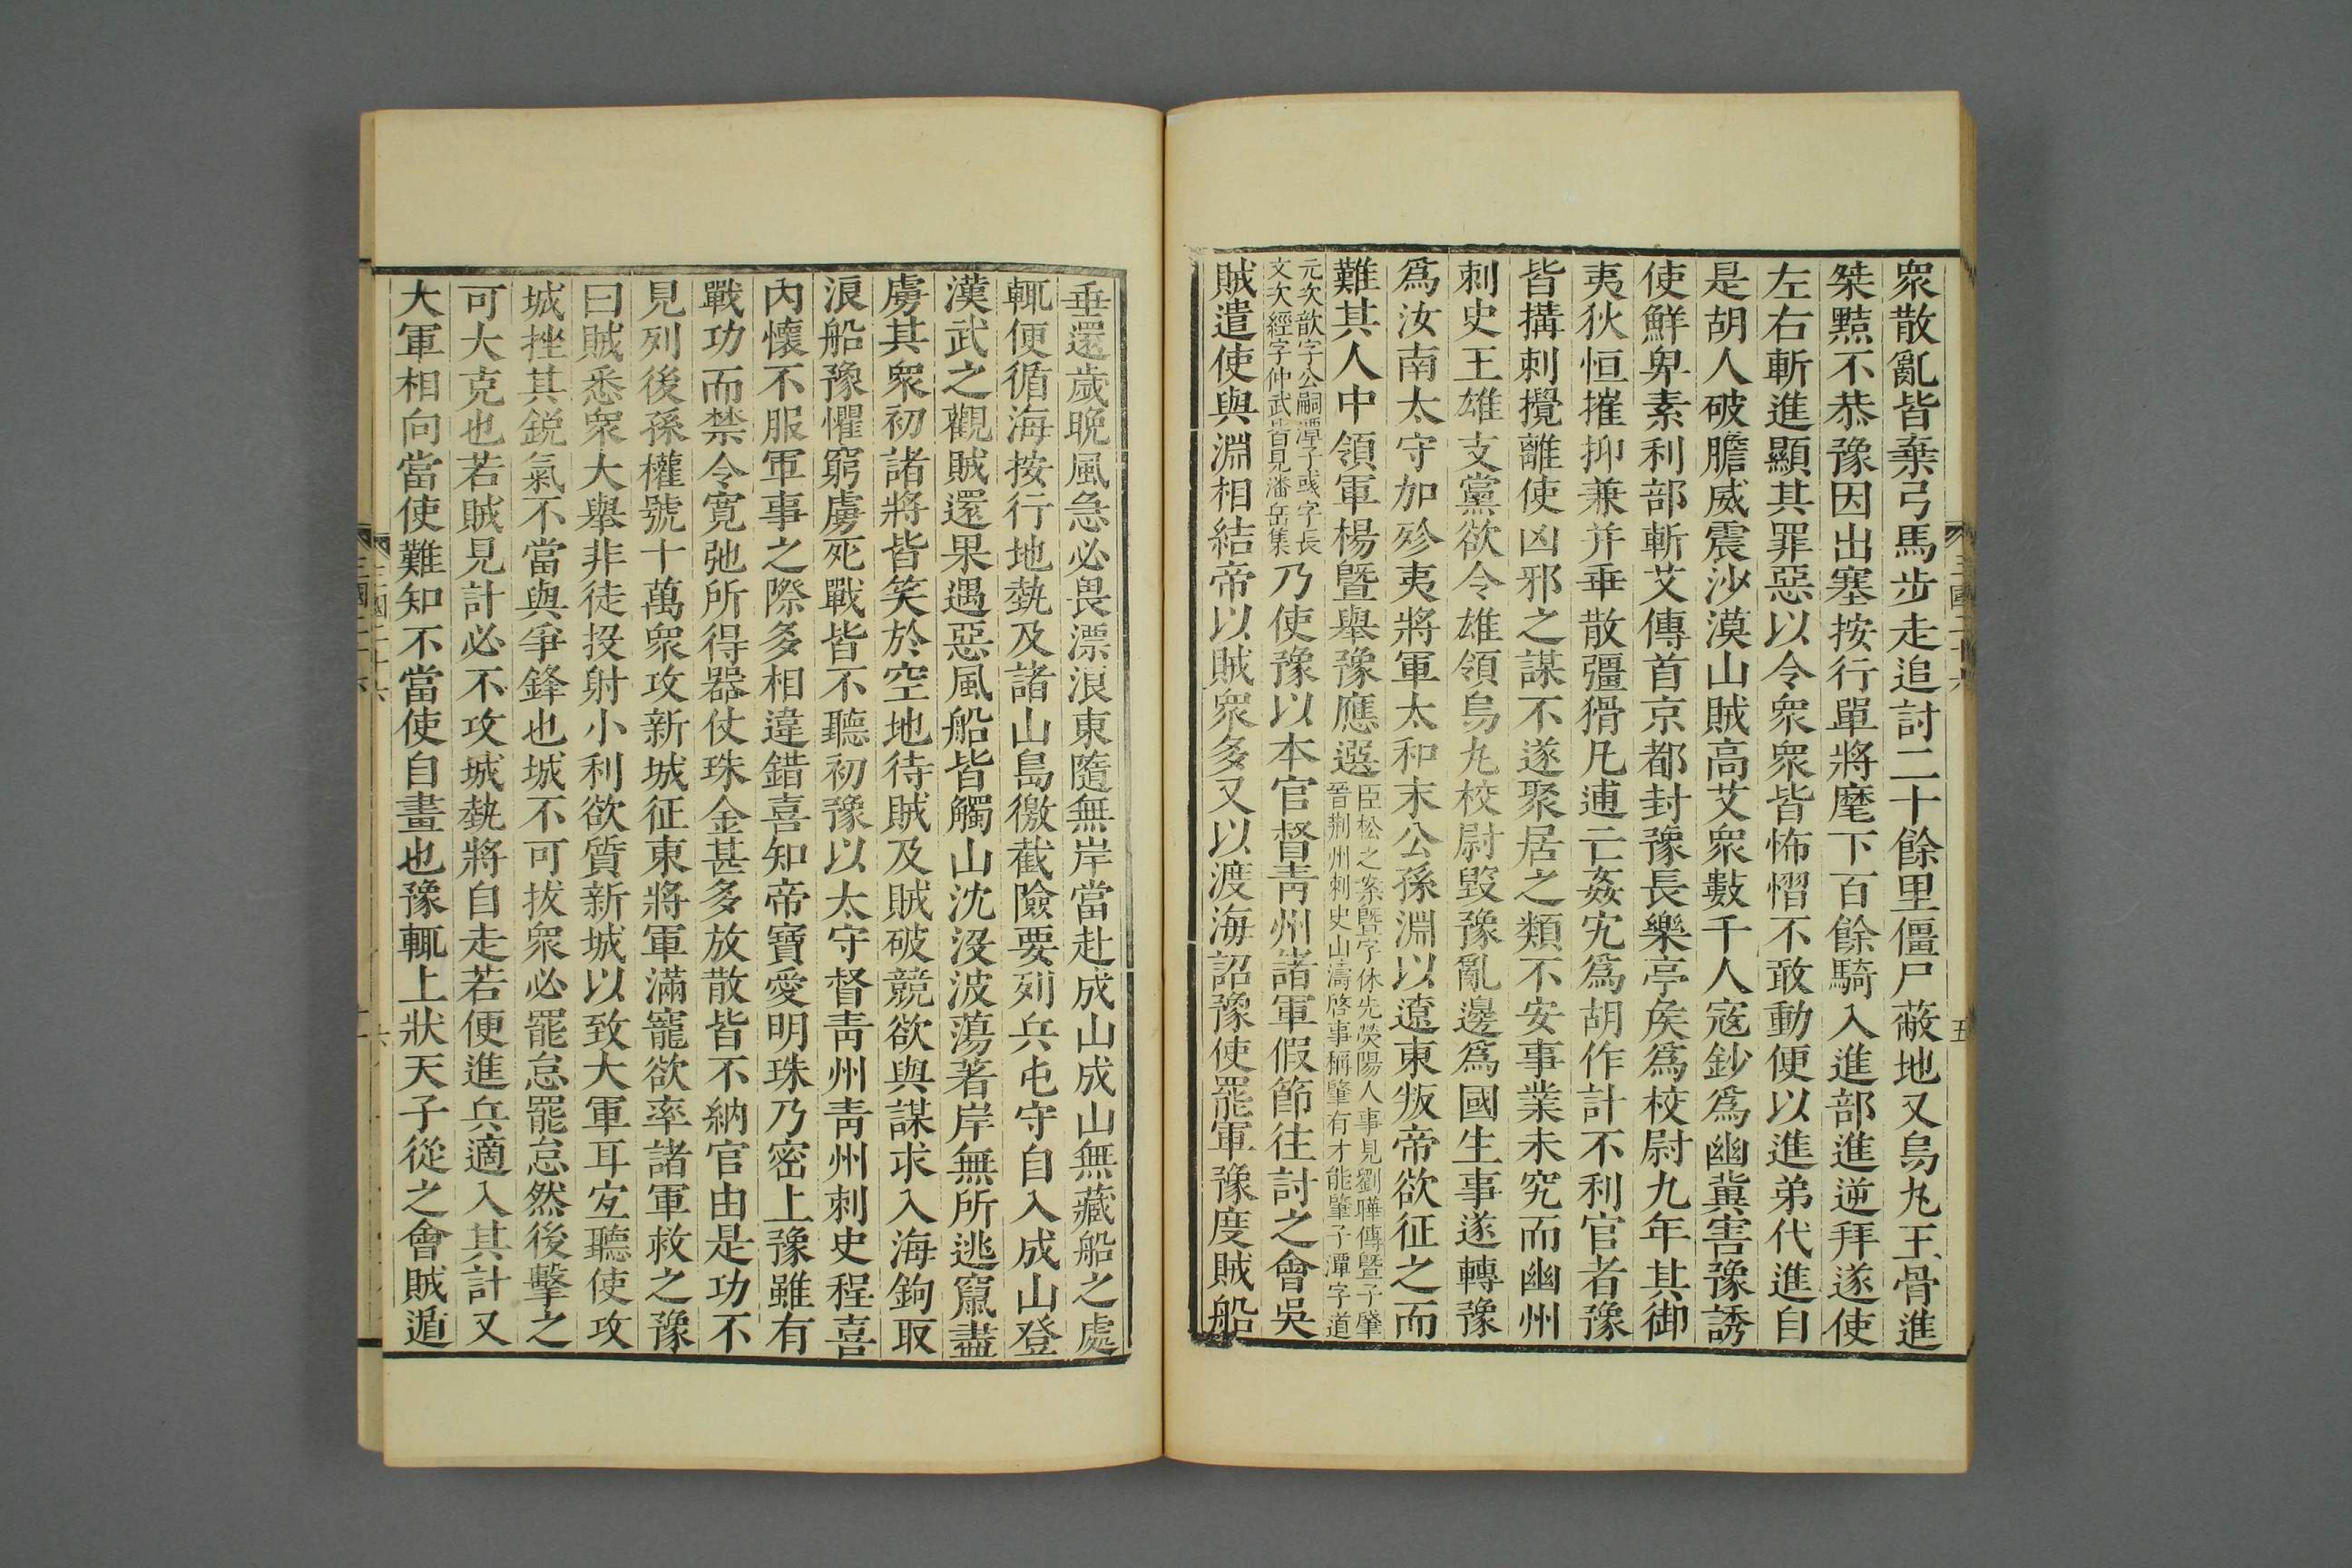 衆散亂皆棄弓馬步走追討二十餘里僵尸蔽地又烏丸王骨進
桀黠不恭豫因出塞按行單將麾下百餘騎入進部進逆拜遂使
左右斬進顯其罪惡以令衆衆皆怖慴不敢動便以進弟代進自
是胡人破膽威震沙漠山賊高艾衆數千人寇鈔爲幽冀害豫誘
使鮮卑素利部斬艾傳首京都封豫長樂亭侯爲校尉九年其御
夷狄恒摧抑兼并乖散彊猾凡逋亡姦宄爲胡作計不利官者豫
皆搆刺攪離使凶邪之謀不遂聚居之類不安事業未究而幽州
刺史王雄支黨欲令雄領烏丸校尉毀豫亂邊爲國生事遂轉豫
爲汝南太守加殄夷將軍太和末公孫淵以遼東叛帝欲征之而
難其人中領軍楊曁舉豫應選臣松之案曁字休先滎陽人事見劉曄傳曁子肇
晉荆州刺史山濤啓事稱肇有才能肇子潭字道
元次歆字公嗣潭子彧字長
文次經字仲武皆見潘岳集乃使豫以本官督青州諸軍假節往討之會吳
賊遣使與淵相結帝以賊衆多又以渡海詔豫使罷軍豫度賊船
垂還歲晚風急必畏漂浪東隨無岸當赴成山成山無藏船之處
輒便循海按行地埶及諸山島徼截險要列兵屯守自入成山登
漢武之觀賊還果遇惡風船皆觸山沈没波蕩著岸無所逃竄盡
虜其衆初諸將皆笑於空地待賊及賊破競欲與謀求入海鉤取
浪船豫懼窮虜死戰皆不聽初豫以太守督青州青州刺史程喜
內懷不服軍事之際多相違錯喜知帝寶愛明珠乃密上豫雖有
戰功而禁令寛弛所得器仗珠金甚多放散皆不納官由是功不
見列後孫權號十萬衆攻新城征東將軍滿寵欲率諸軍救之豫
曰賊悉衆大舉非徒投射小利欲質新城以致大軍耳宜聽使攻
城挫其鋭氣不當與爭鋒也城不可拔衆必罷怠罷怠然後擊之
可大克也若賊見計必不攻城埶將自走若便進兵適入其計又
大軍相向當使難知不當使自畫也豫輒上狀天子從之會賊遁